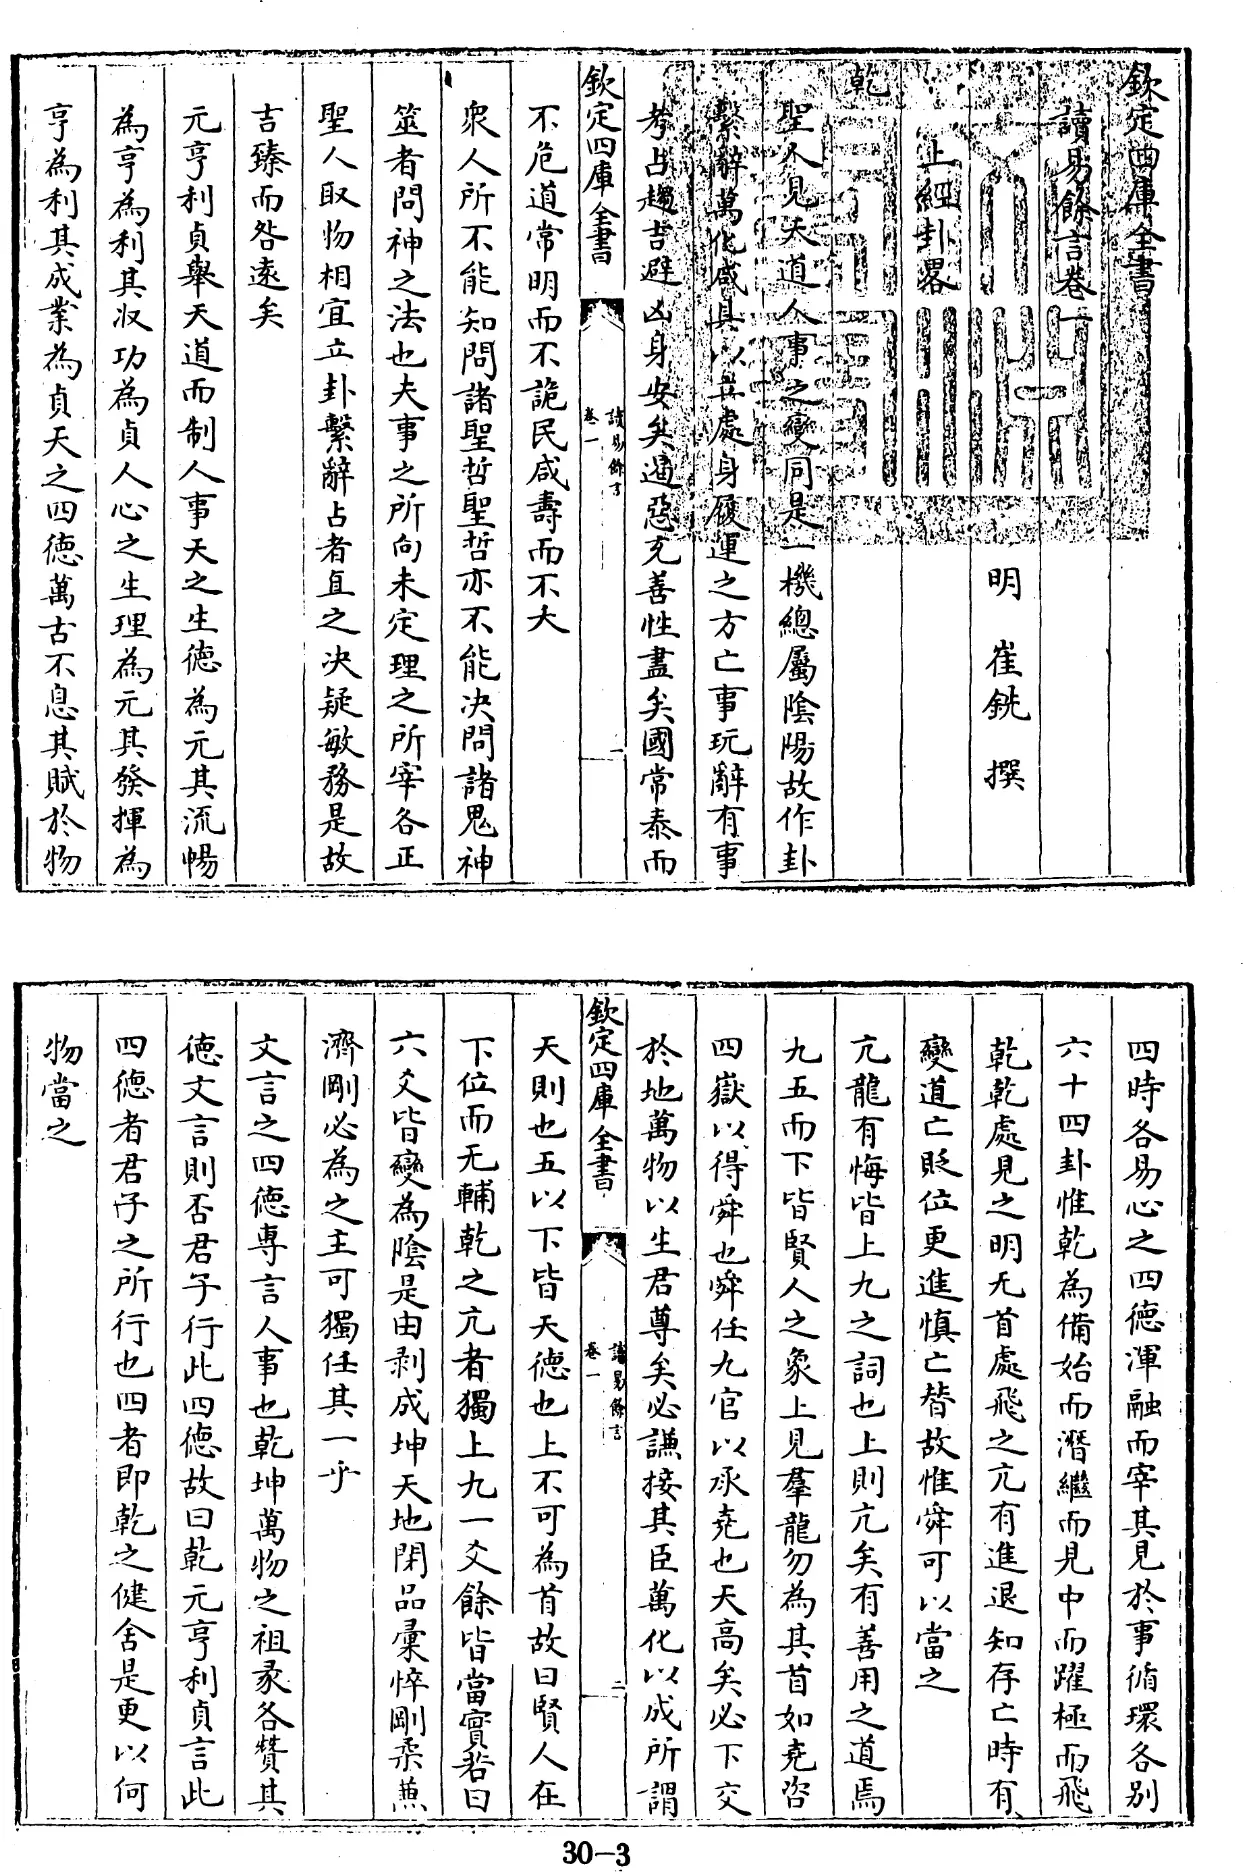 欽定四庫全書
讀易餘言卷一
明 崔銑 撰
上經卦畧
乾
聖人見天道人事之變同是一機總屬陰陽故作卦
繫辭萬化咸具以立處身履運之方亡事玩辭有事
考占趨吉避凶身安矣遏惡充善性盡矣國常泰而
欽定四庫全書
讀易餘言
卷一
一
不危道常明而不詭民咸壽而不夭
衆人所不能知問諸聖哲聖哲亦不能決問諸鬼神
筮者問神之法也夫事之所向未定理之所宰各正
聖人取物相宜立卦繫辭占者直之決疑敏務是故
吉臻而咎遠矣
元亨利貞舉天道而制人事天之生德為元其流暢
為亨為利其収功為貞人心之生理為元其發揮為
亨為利其成業為貞天之四德萬古不息其賦於物
四時各易心之四德渾融而宰其見於事循環各別
六十四卦惟乾為備始而潛繼而見中而躍極而飛
乾乾處見之明无首處飛之亢有進退知存亡時有
變道亡貶位更進慎亡替故惟舜可以當之
亢龍有悔皆上九之詞也上則亢矣有善用之道焉
九五而下皆賢人之象上見羣龍勿為其首如堯咨
四嶽以得舜也舜任九官以承堯也天高矣必下交
於地萬物以生君尊矣必謙接其臣萬化以成所謂
欽定四庫全書
讀易餘言
卷一
二
天則也五以下皆天德也上不可為首故曰賢人在
下位而无輔乾之亢者獨上九一爻餘皆當實若曰
六爻皆變為陰是由剥成坤天地閉品彚悴剛柔兼
濟剛必為之主可獨任其一乎
文言之四德專言人事也乾坤萬物之祖彖各贊其
德文言則否君子行此四德故曰乾元亨利貞言此
四德者君子之所行也四者即乾之健舍是更以何
物當之
30-3